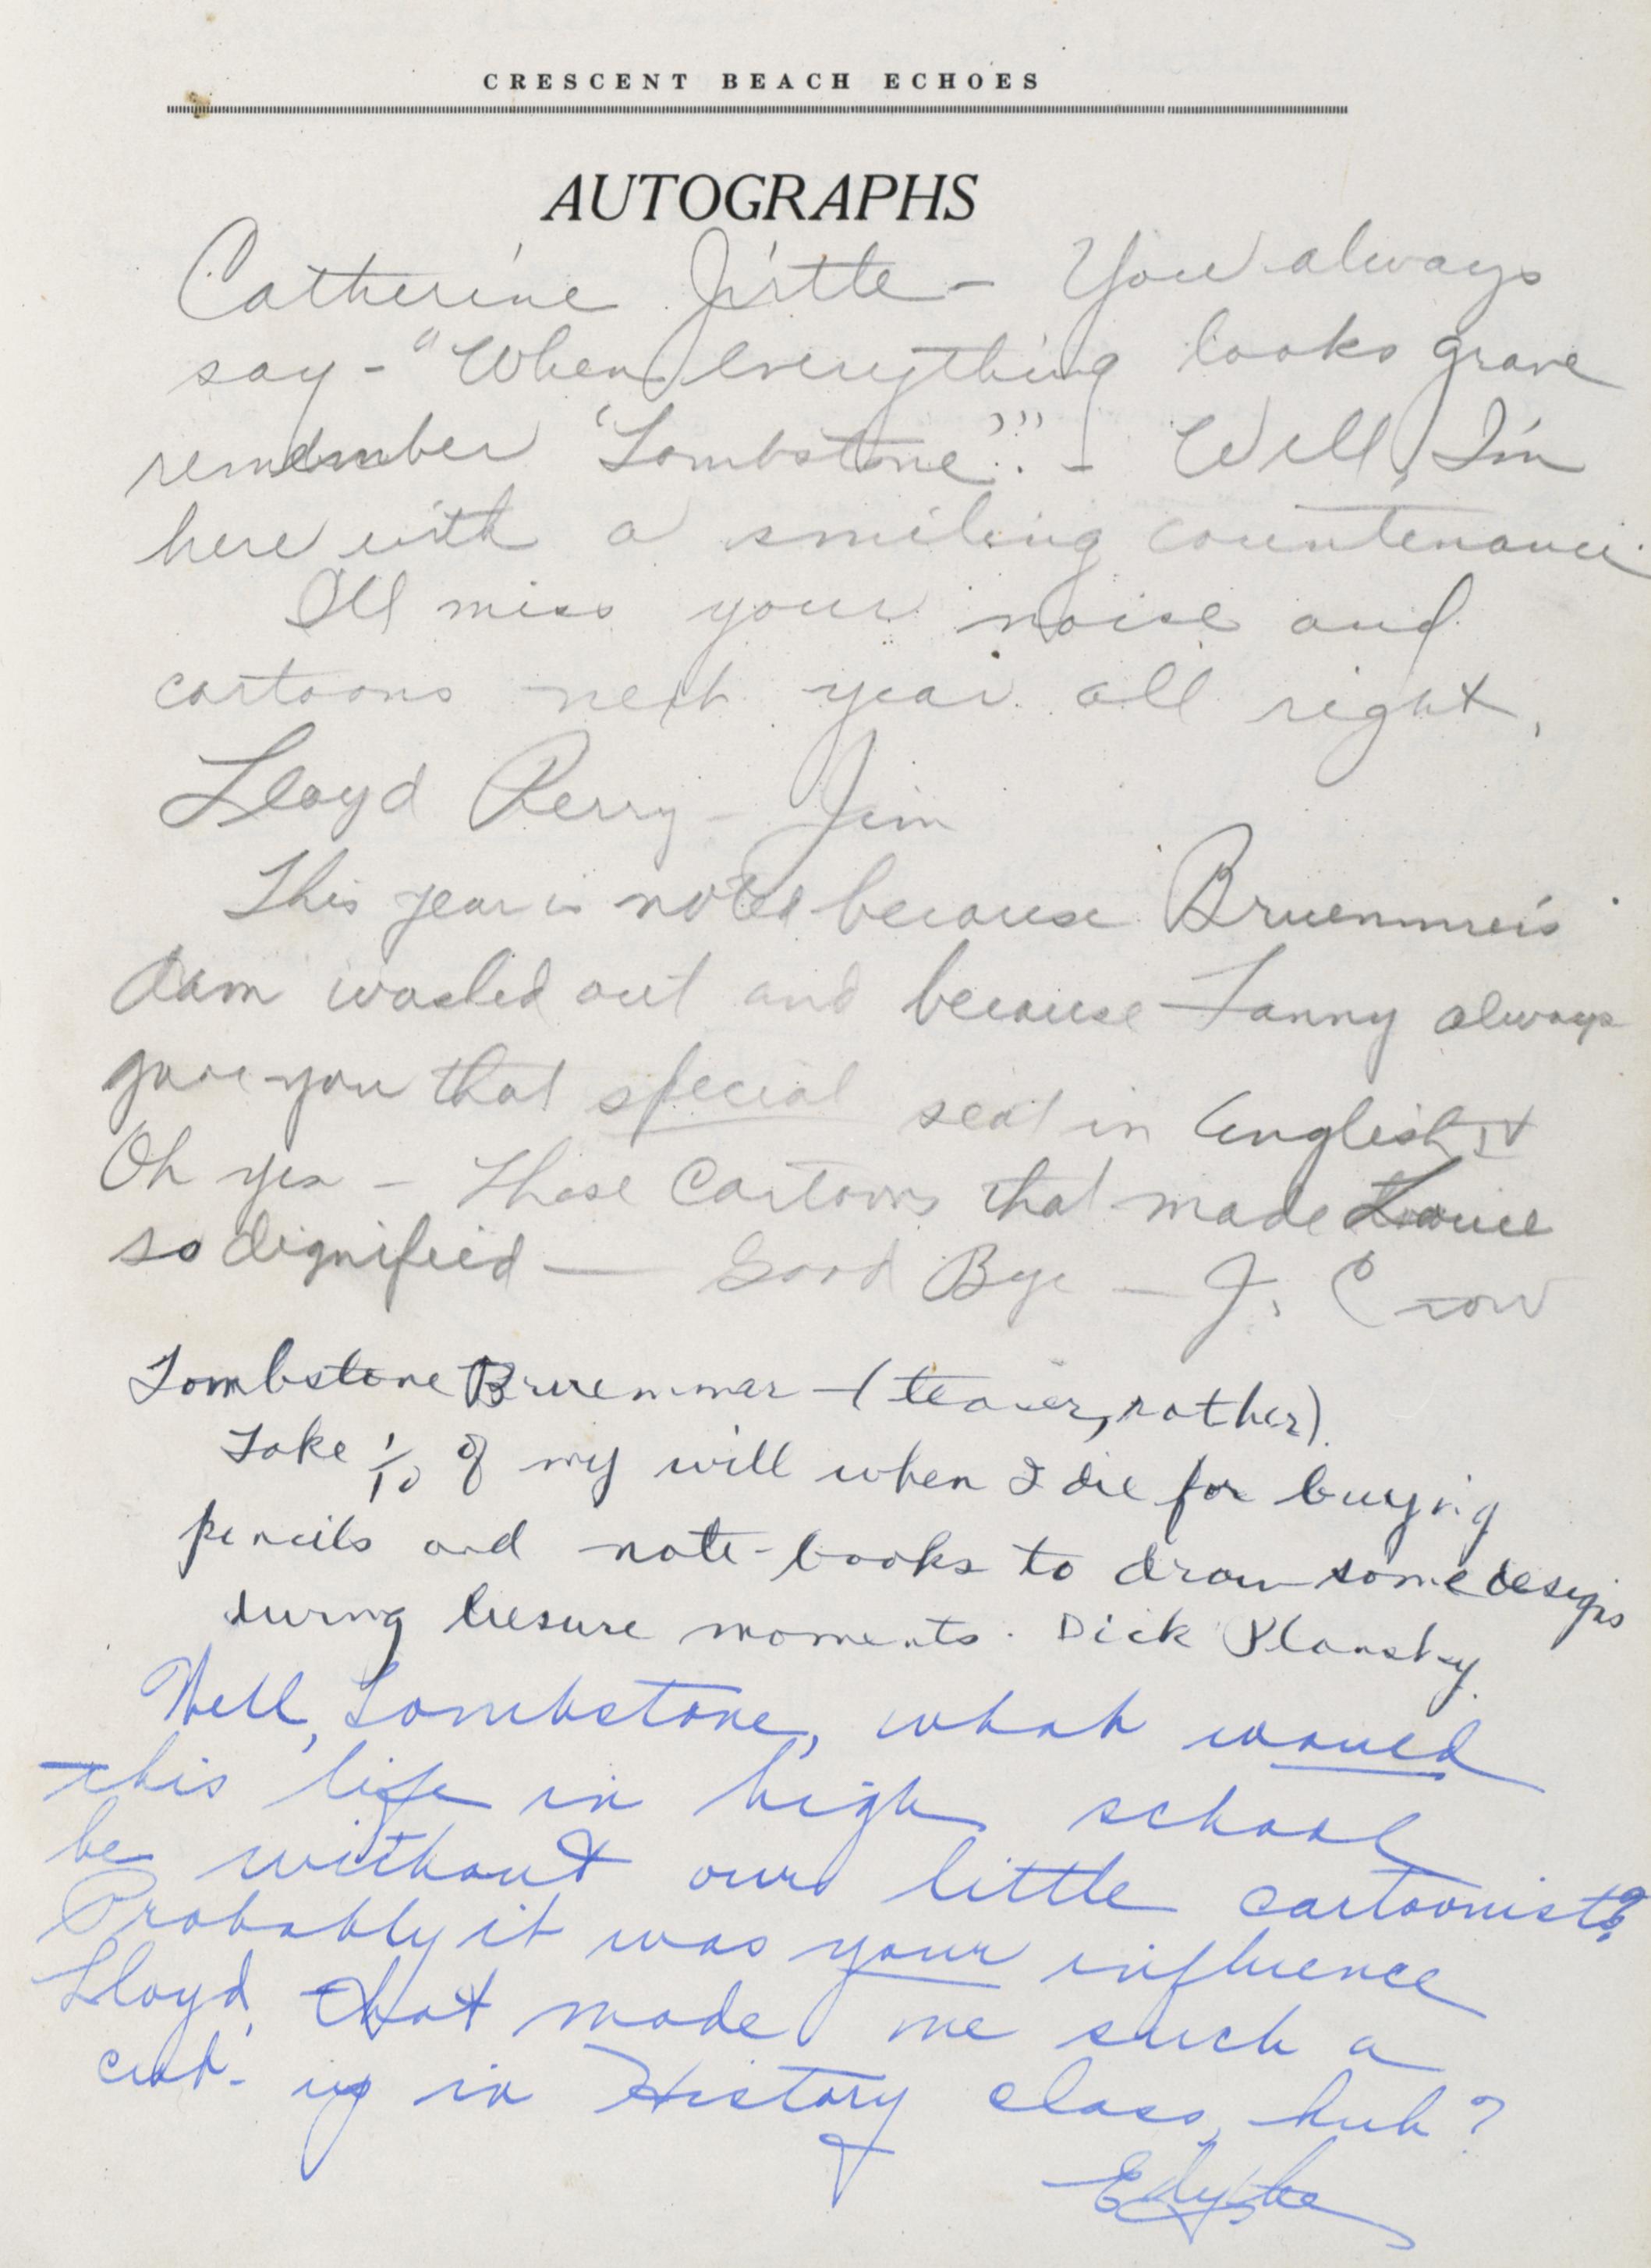 CRESCENT BEACH ECHOES
AUTOGRAPHS
Catherine Jirtle - You always
say - "When everything looks grave
remember 'Tombstone'." - Well, I'm
here with a smiling countenance.
I'll miss your noise and
cartoons next year all right.
Lloyd Perry - Jim
This year is noted because Bruemmer's
dam washed out and because Fanny always
gave you that special seat in English IV
Oh yes - Those Cartoons that made Louise
so dignified — Good Bye — J. Crow
Tombstone Bruemmar - (teaser, rather).
Take 1/10 of my will when I die for buying
pencils and note-books to draw some designs
during liesure moments. Dick Plansky
Well, Tombstone, what would
this life in high school
be without our little cartoonist?
Probably it was your influence
Lloyd, that made me such a
cut-up in History class, huh?
Edythe